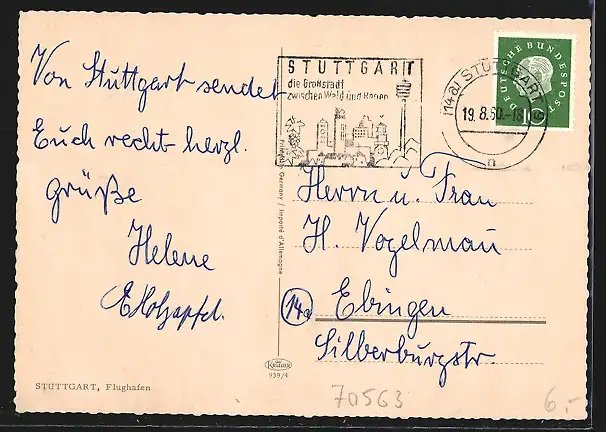 Von Stuttgart sendet
Euch recht herzl.
Grüße
Helene
E Holzapfel.
STUTTGART, Flughafen
Printed in Germany / Importé d'Allemagne
Krüger
939/4
STUTTGART
die Großstadt
zwischen Wald und Reben
(14a) STUTTGART 9
19.8.60.-18
n
DEUTSCHE BUNDESPOST
10
Herrn u. Frau
H. Vogelmann
14a Ebingen
Silberburgstr.
70563
6,-